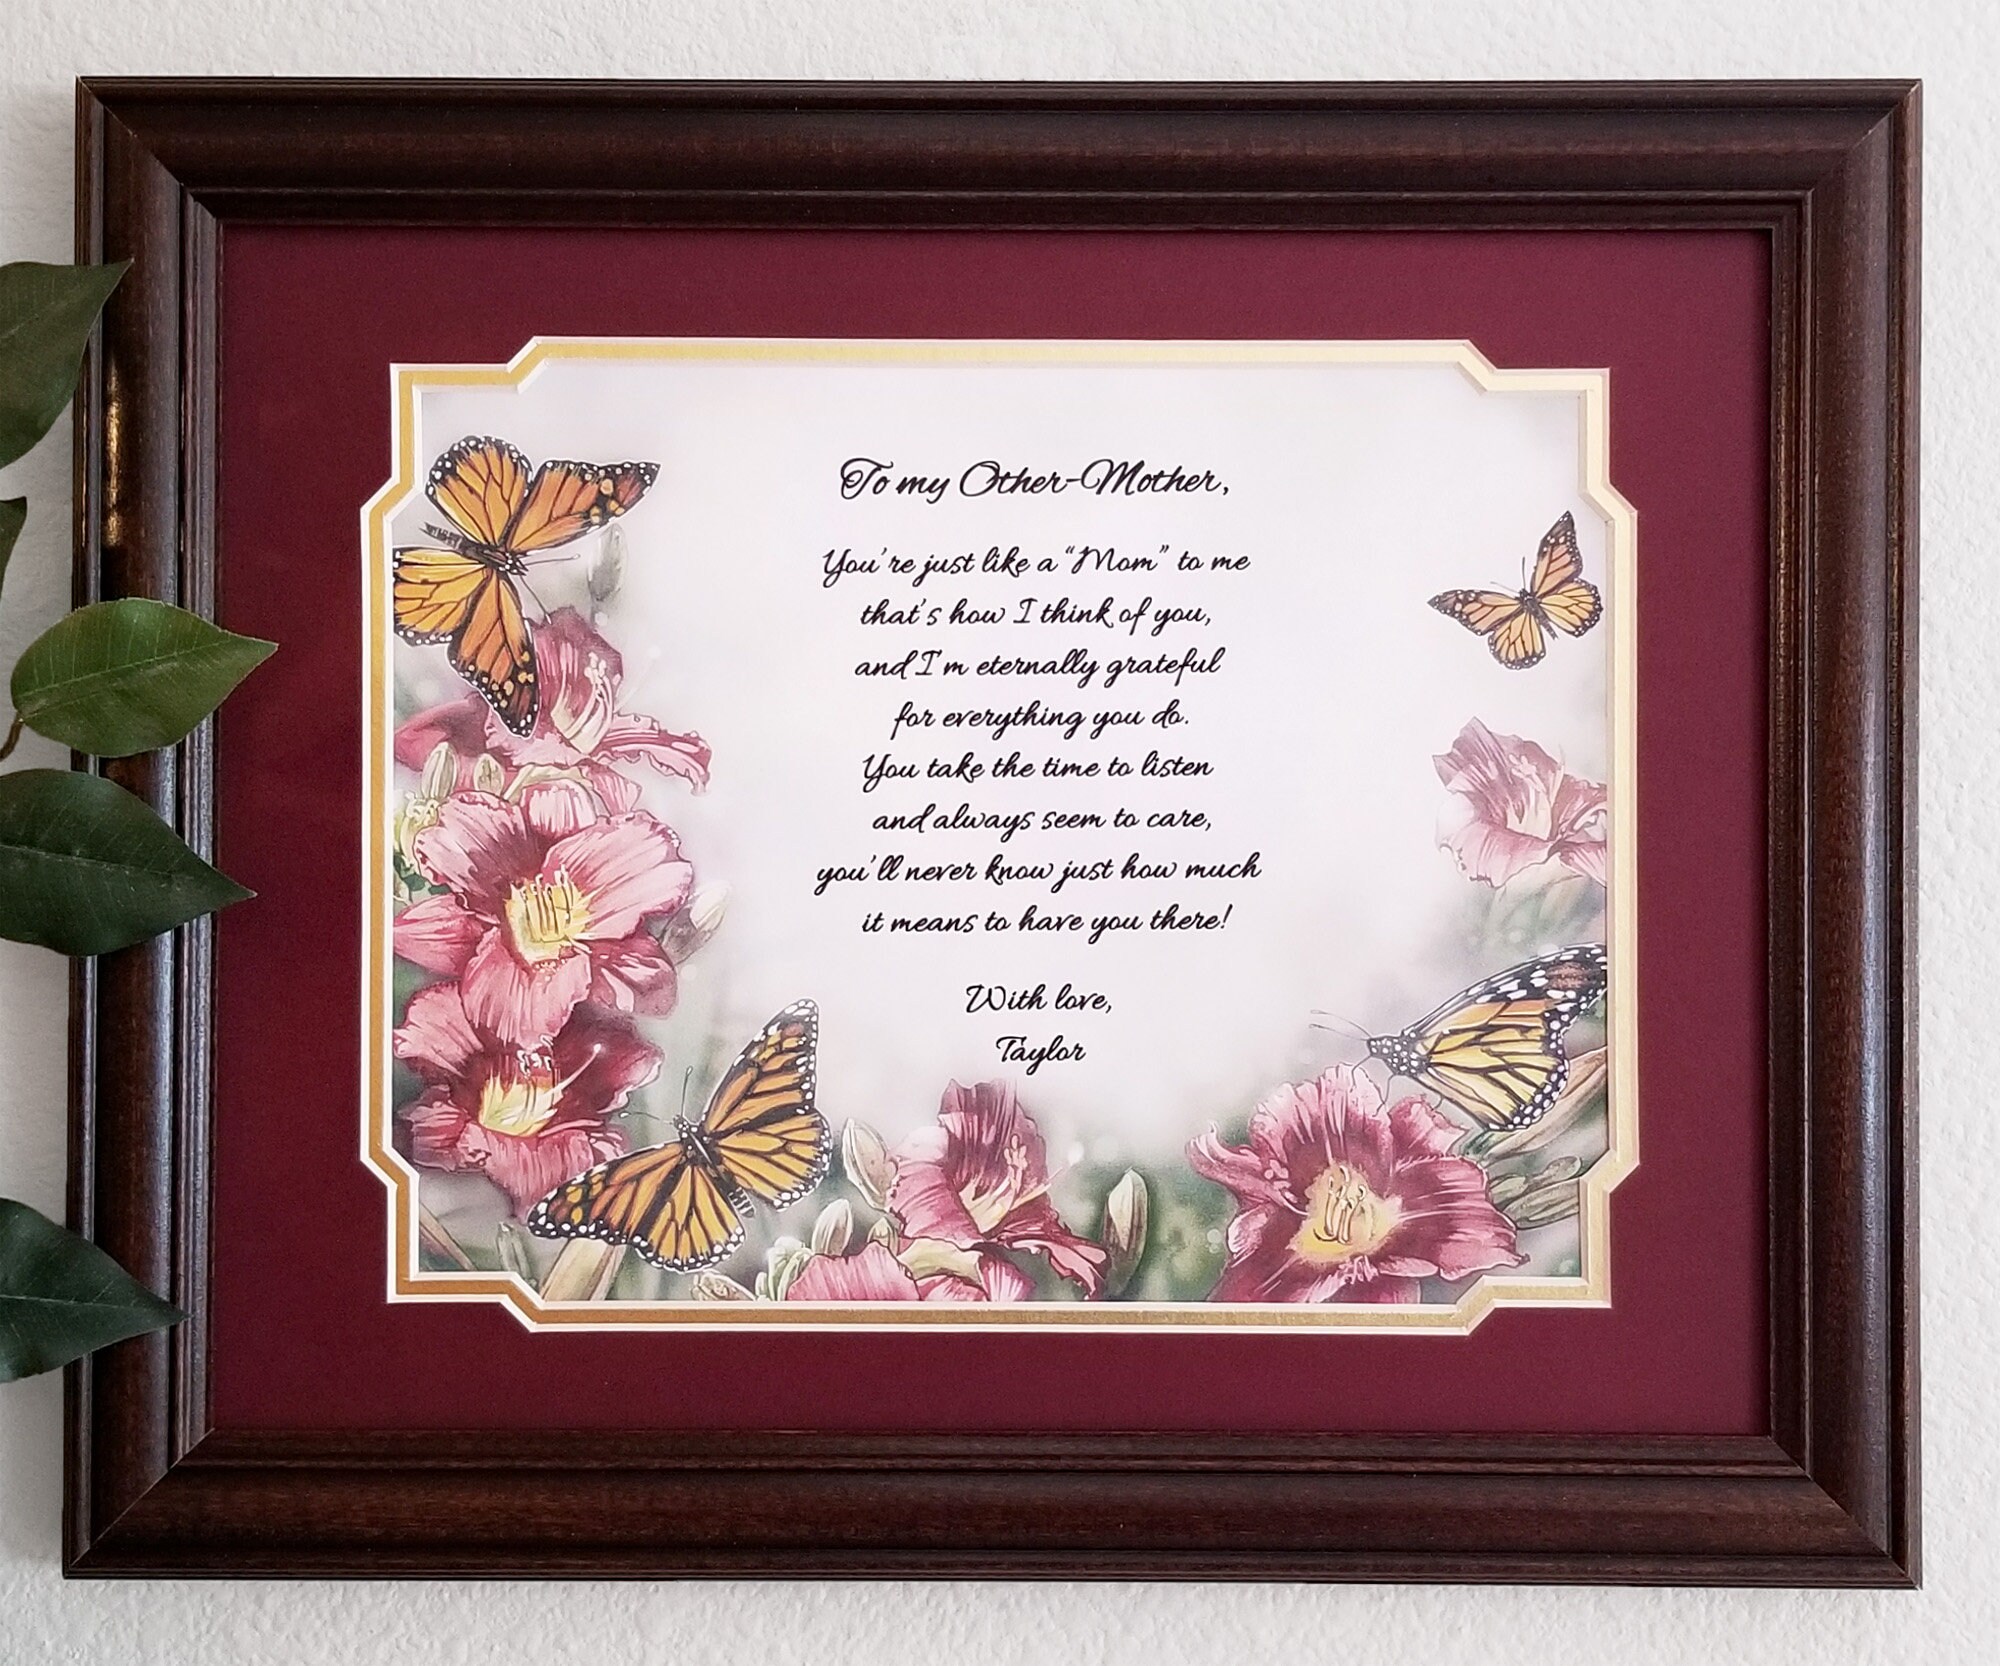 To my Other-Mother,
You're just like a "Mom" to me
that's how I think of you,
and I'm eternally grateful
for everything you do.
You take the time to listen
and always seem to care,
you'll never know just how much
it means to have you there!
With love,
Taylor